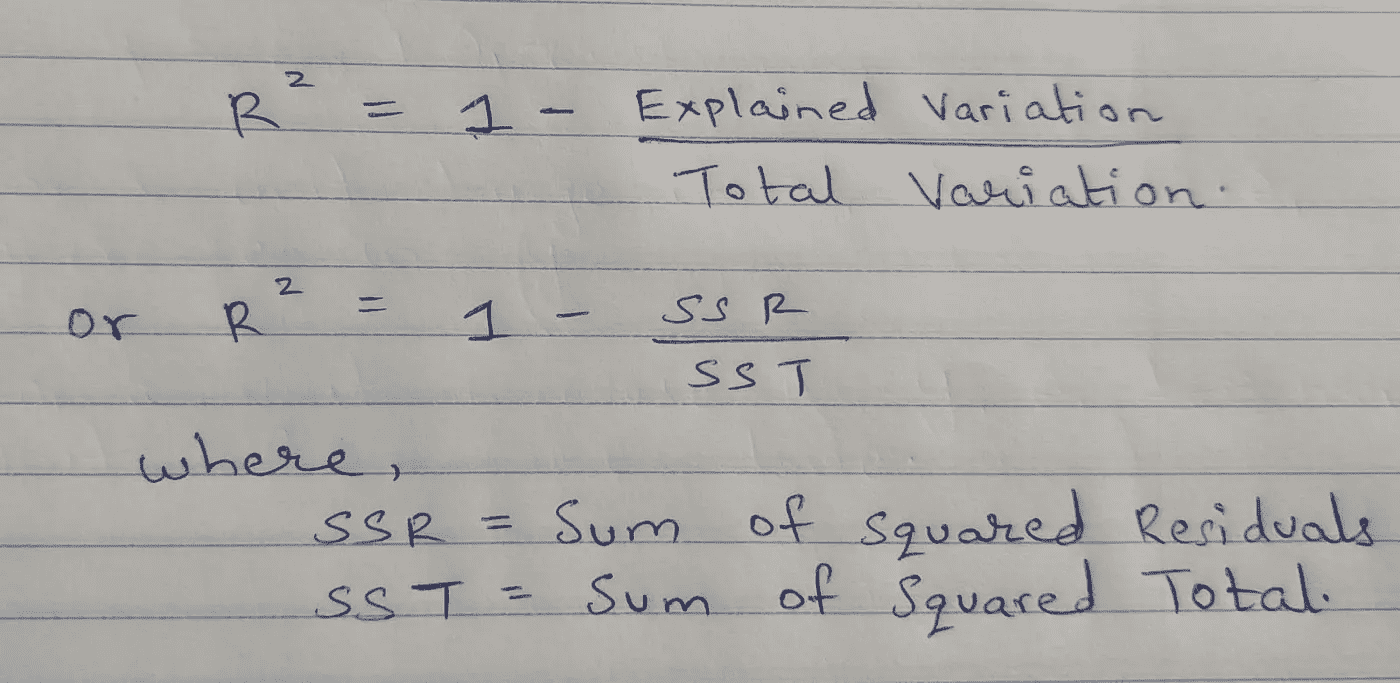 R² = 1 - Explained Variation
Total Variation.
or R² = 1 - SSR
SST
where,
SSR = Sum of Squared Residuals
SST = Sum of Squared Total.